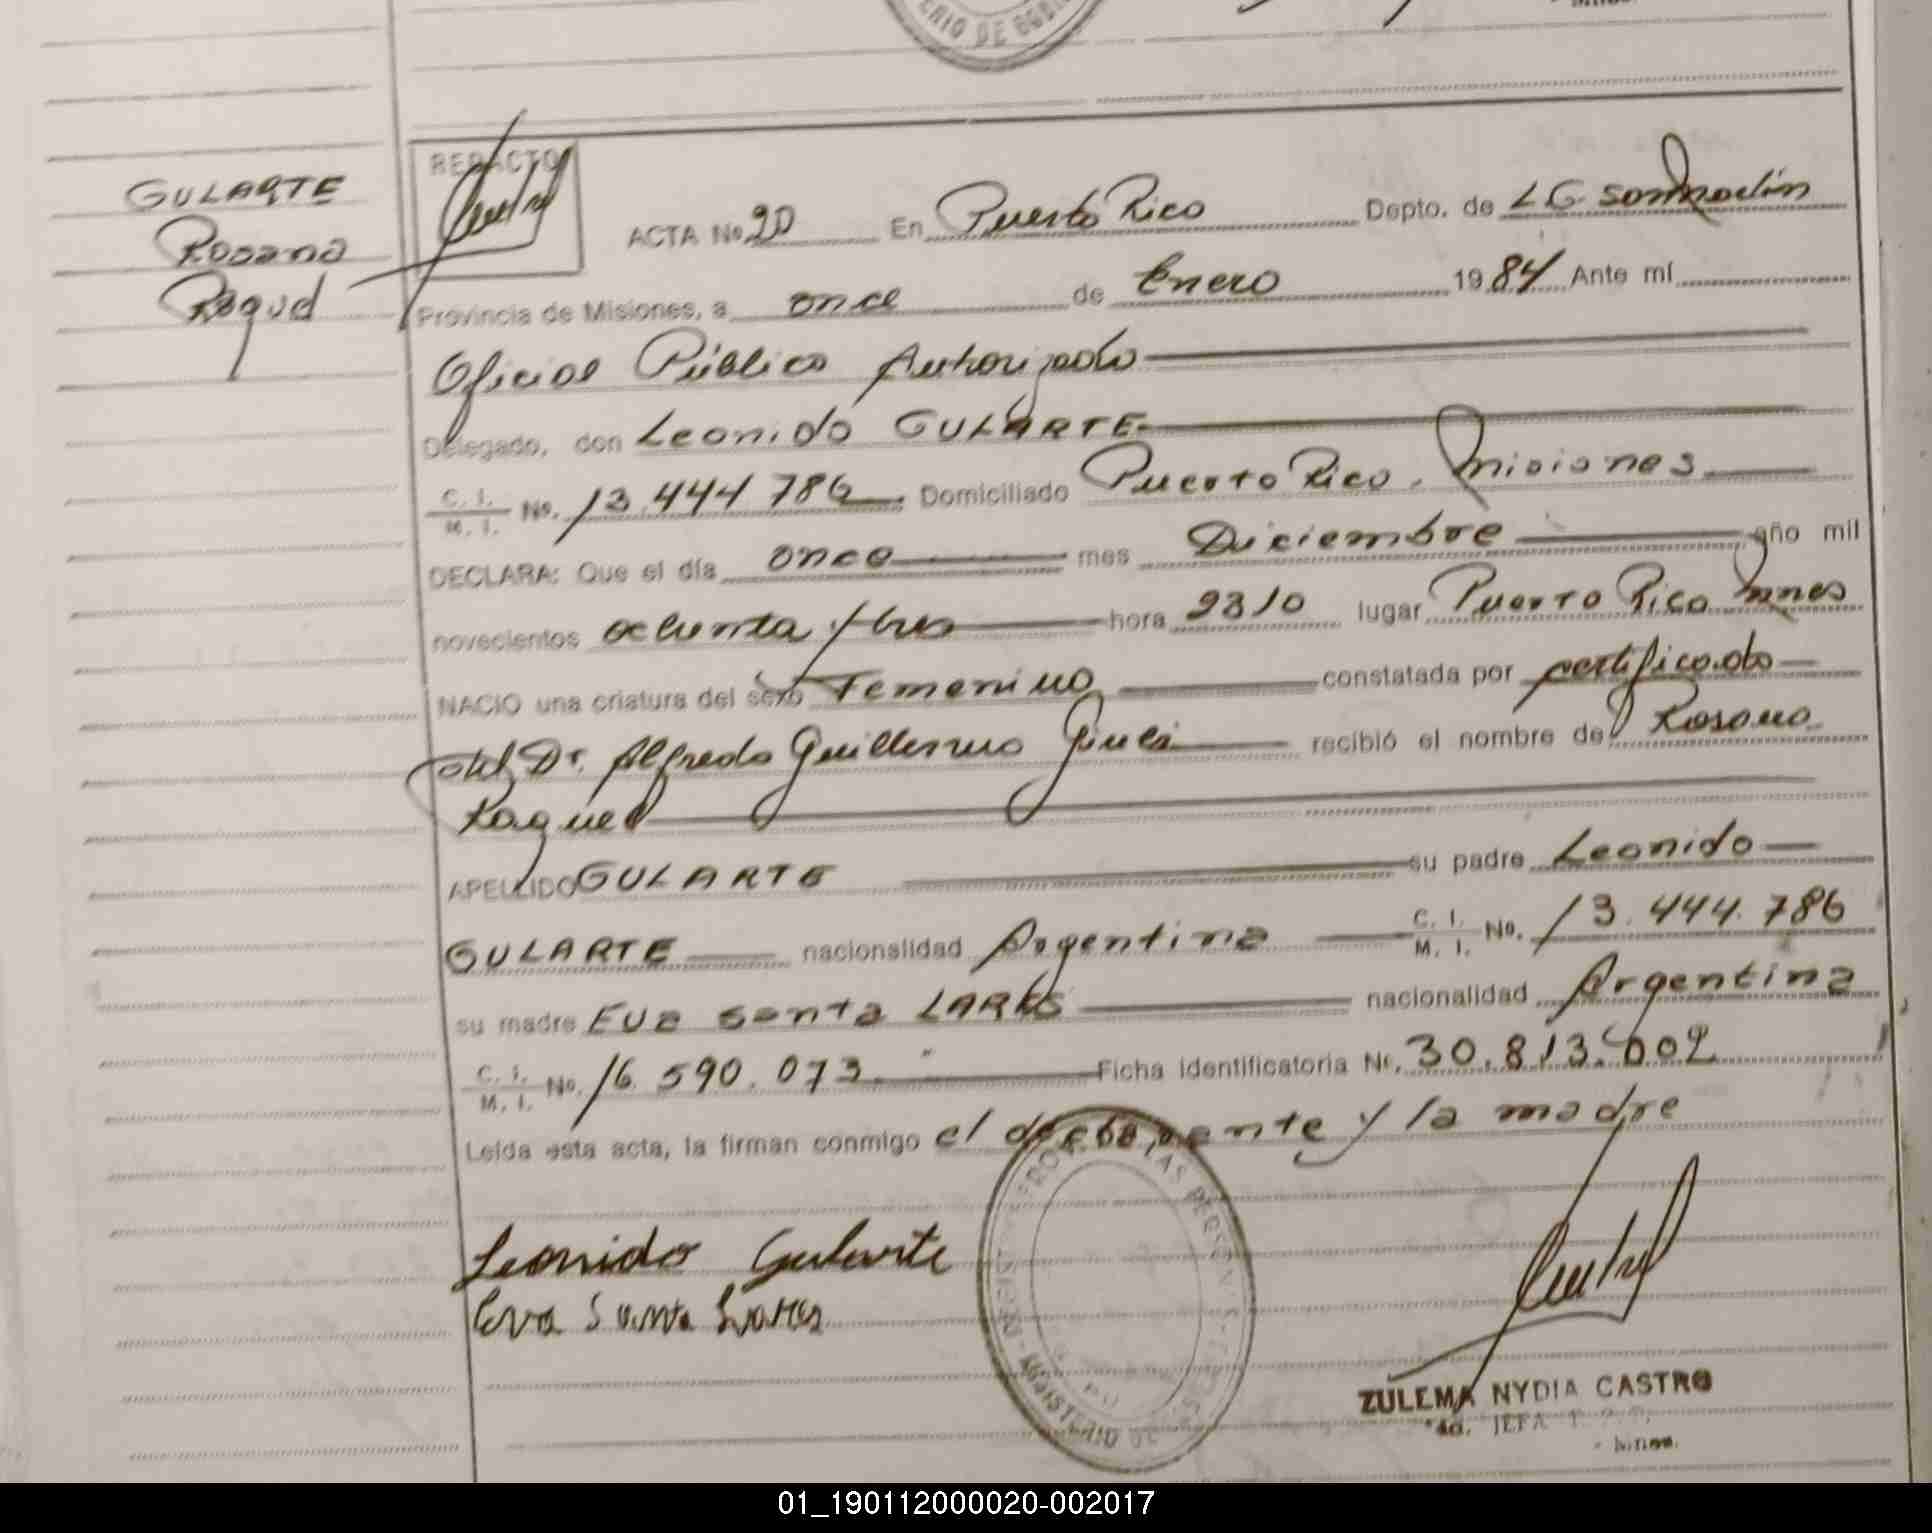 RIO DE GOBI
GULARTE
Rosana
Raquel
REDACTO
ACTA No 20 En Puerto Rico Depto. de L G San Martín
Provincia de Misiones, a once de Enero 1984 Ante mí
Oficial Público Autorizado
Delegado, don Leonido GULARTE
C. I. / M. I. No. 13.444 786 Domiciliado Puerto Rico. Misiones
DECLARA: Que el día once mes Diciembre año mil
novecientos ochenta y tres hora 2310 lugar Puerto Rico Mnes
NACIO una criatura del sexo Femenino constatada por certificado
del Dr. Alfredo Guillermo recibió el nombre de Rosana
Raquel
APELLIDO GULARTE su padre Leonido
GULARTE nacionalidad Argentina C. I. / M. I. No. 13.444.786
su madre Eva Santa LARES nacionalidad Argentina
C. I. / M. I. No. 16.590.073. Ficha identificatoria Nº. 30.813.602
Leída esta acta, la firman conmigo el declarante y la madre
Leonido Gularte
Eva Santa
LAS PERSONAS
ZULEMA NYDIA CASTRO
JEFA
Mnes.
01_190112000020-002017